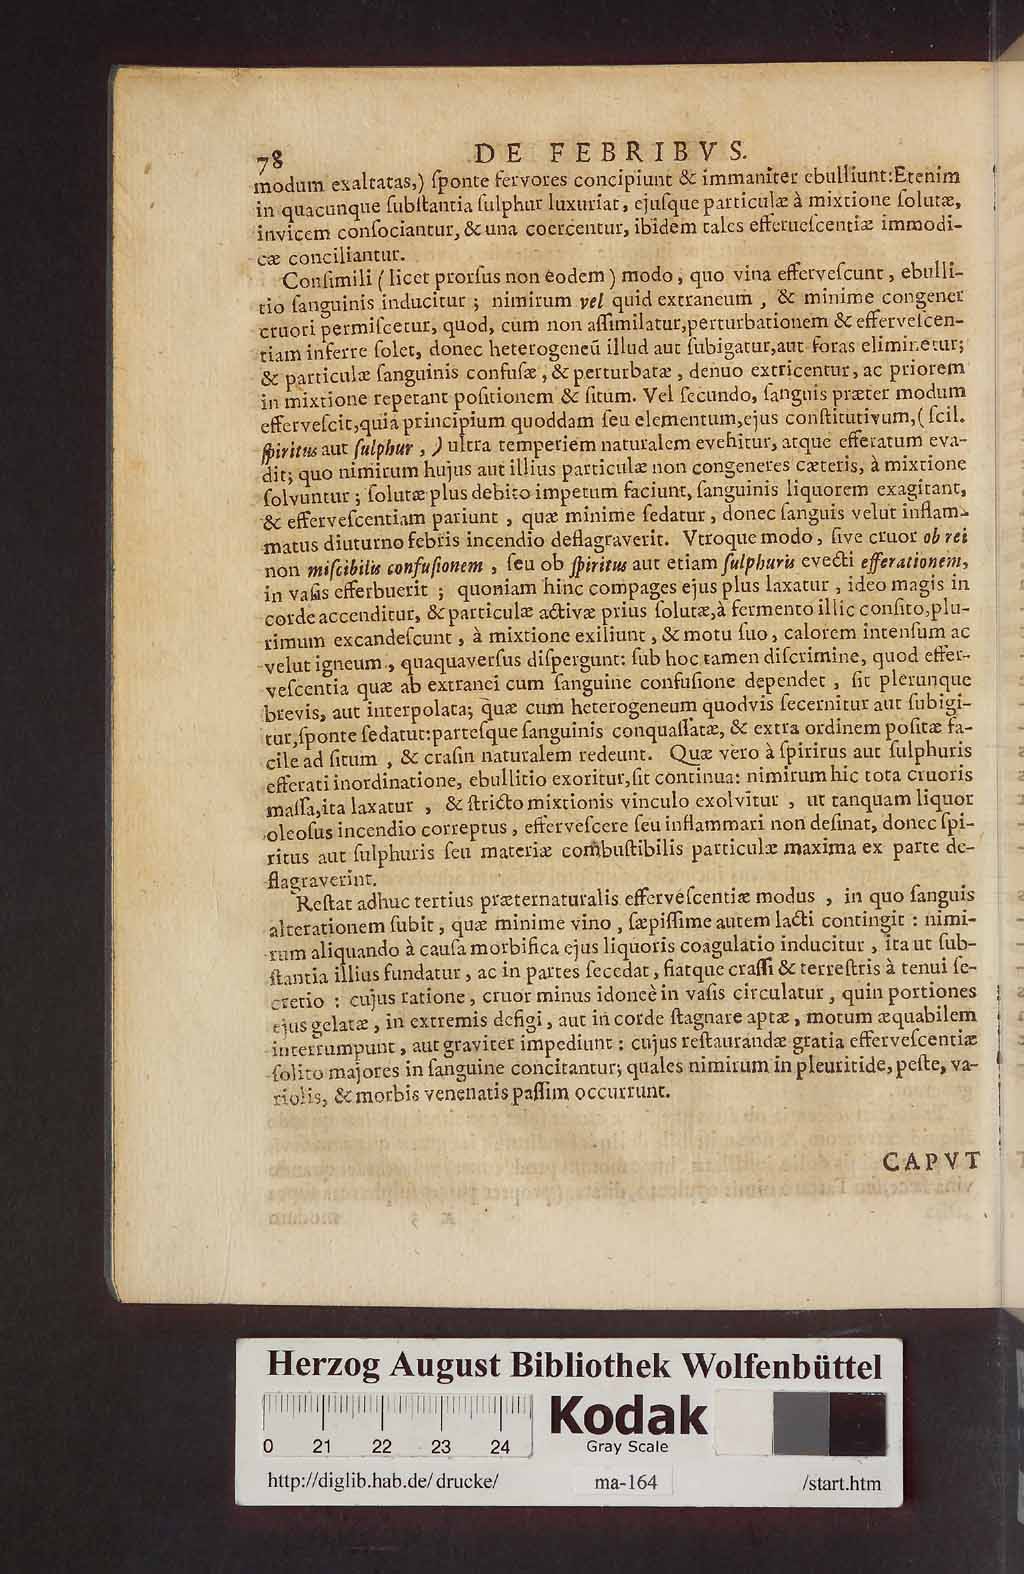 78 DE FEBRIBVS.
modum exaltatas,) ſponte fervores concipiunt & immaniter ebulliunt:Etenim
in quacunque ſubſtantia ſulphur luxuriat, ejuſque particulæ à mixtione ſolutæ,
invicem conſociantur, & una coercentur, ibidem tales efferueſcentiæ immodi-
cæ conciliantur.
Conſimili ( licet prorſus non eodem ) modo, quo vina efferveſcunt, ebulli-
tio ſanguinis inducitur ; nimirum vel quid extraneum , & minime congener
cruori permiſcetur, quod, cum non aſſimilatur,perturbationem & efferveſcen-
tiam inferre ſolet, donec heterogeneũ illud aut ſubigatur,aut foras eliminetur;
& particulæ ſanguinis confuſæ, & perturbatæ , denuo extricentur, ac priorem
in mixtione repetant poſitionem & ſitum. Vel ſecundo, ſanguis præter modum
efferveſcit,quia principium quoddam ſeu elementum,ejus conſtitutivum,( ſcil.
ſpiritus aut ſulphur , ) ultra temperiem naturalem evehitur, atque efferatum eva-
dit; quo nimirum hujus aut illius particulæ non congeneres cæteris, à mixtione
ſolvuntur ; ſolutæ plus debito impetum faciunt, ſanguinis liquorem exagitant,
& efferveſcentiam pariunt , quæ minime ſedatur, donec ſanguis velut inflam-
matus diuturno febris incendio deflagraverit. Vtroque modo, ſive cruor ob rei
non miſcibilis confuſionem , ſeu ob ſpiritus aut etiam ſulphuris evecti efferationem,
in vaſis efferbuerit ; quoniam hinc compages ejus plus laxatur , ideo magis in
corde accenditur, & particulæ activæ prius ſolutæ,à fermento illic conſito,plu-
rimum excandeſcunt , à mixtione exiliunt, & motu ſuo, calorem intenſum ac
velut igneum , quaquaverſus diſpergunt: ſub hoc tamen diſcrimine, quod effer-
veſcentia quæ ab extranei cum ſanguine confuſione dependet , ſit plerunque
brevis, aut interpolata; quæ cum heterogeneum quodvis ſecernitur aut ſubigi-
tur,ſponte ſedatur:parteſque ſanguinis conquaſſatæ, & extra ordinem poſitæ fa-
cile ad ſitum , & craſin naturalem redeunt. Quæ vero à ſpiritus aut ſulphuris
efferati inordinatione, ebullitio exoritur,ſit continua: nimirum hic tota cruoris
maſſa,ita laxatur , & ſtricto mixtionis vinculo exolvitur , ut tanquam liquor
oleoſus incendio correptus, efferveſcere ſeu inflammari non deſinat, donec ſpi-
ritus aut ſulphuris ſeu materiæ combuſtibilis particulæ maxima ex parte de-
flagraverint.
Reſtat adhuc tertius præternaturalis efferveſcentiæ modus , in quo ſanguis
alterationem ſubit, quæ minime vino, ſæpiſſime autem lacti contingit : nimi-
rum aliquando à cauſa morbifica ejus liquoris coagulatio inducitur , ita ut ſub-
ſtantia illius fundatur, ac in partes ſecedat, fiatque craſſi & terreſtris à tenui ſe-
cretio : cujus ratione, cruor minus idoneè in vaſis circulatur, quin portiones
ejus gelatæ, in extremis defigi, aut in corde ſtagnare aptæ, motum æquabilem
interrumpunt, aut graviter impediunt : cujus reſtaurandæ gratia efferveſcentiæ
ſolito majores in ſanguine concitantur; quales nimirum in pleuritide, peſte, va-
riolis, & morbis venenatis paſſim occurrunt.
CAPVT
Herzog August Bibliothek Wolfenbüttel
0 21 22 23 24
Kodak
Gray Scale
http://diglib.hab.de/drucke/ ma-164 /start.htm